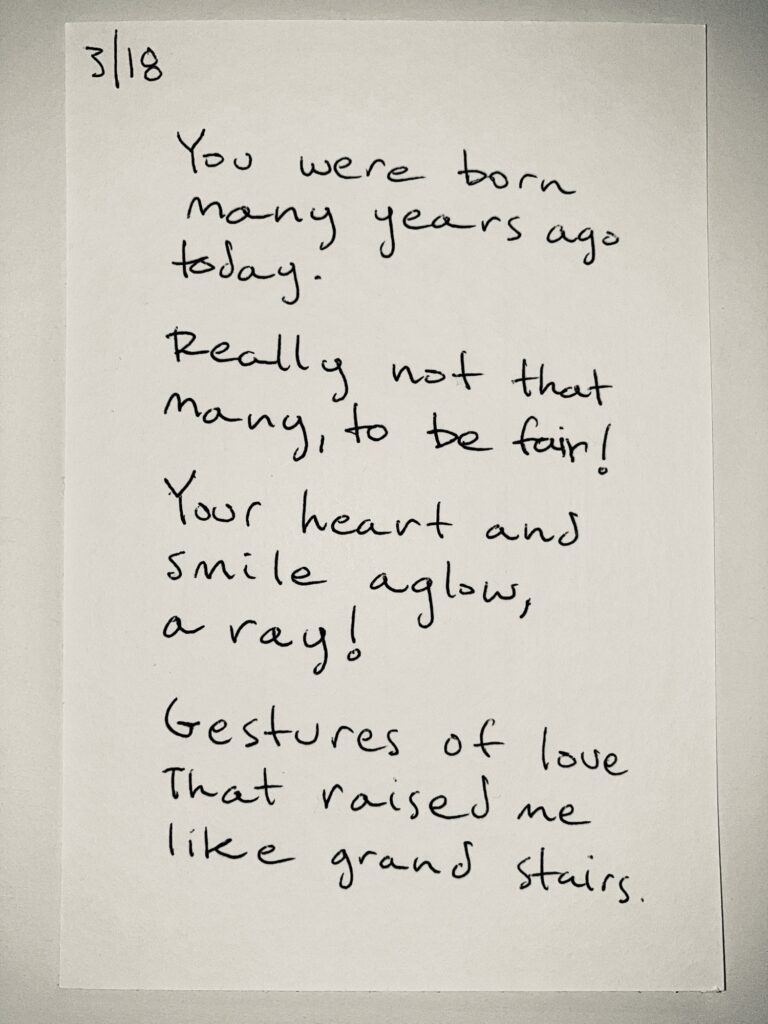 3/18
You were born
many years ago
today.
Really not that
many, to be fair!
Your heart and
smile aglow,
a ray!
Gestures of love
That raised me
like grand stairs.